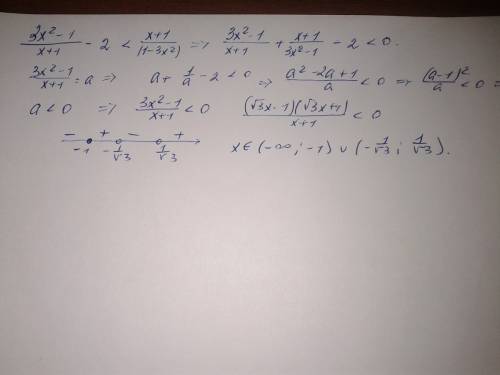 (3x²-1)/(x+1) - 2 < (x+1)/(1-3x²) => (3x²-1)/(x+1) + (x+1)/(3x²-1) - 2 < 0.
(3x²-1)/(x+1) = a => a + 1/a - 2 < 0 => (a²-2a+1)/a < 0 => (a-1)²/a < 0 =>
a < 0 => (3x²-1)/(x+1) < 0 ((√3x-1)(√3x+1))/(x+1) < 0
- + - +
-1 -1/√3 1/√3 x ∈ (-∞; -1) ∪ (-1/√3; 1/√3).